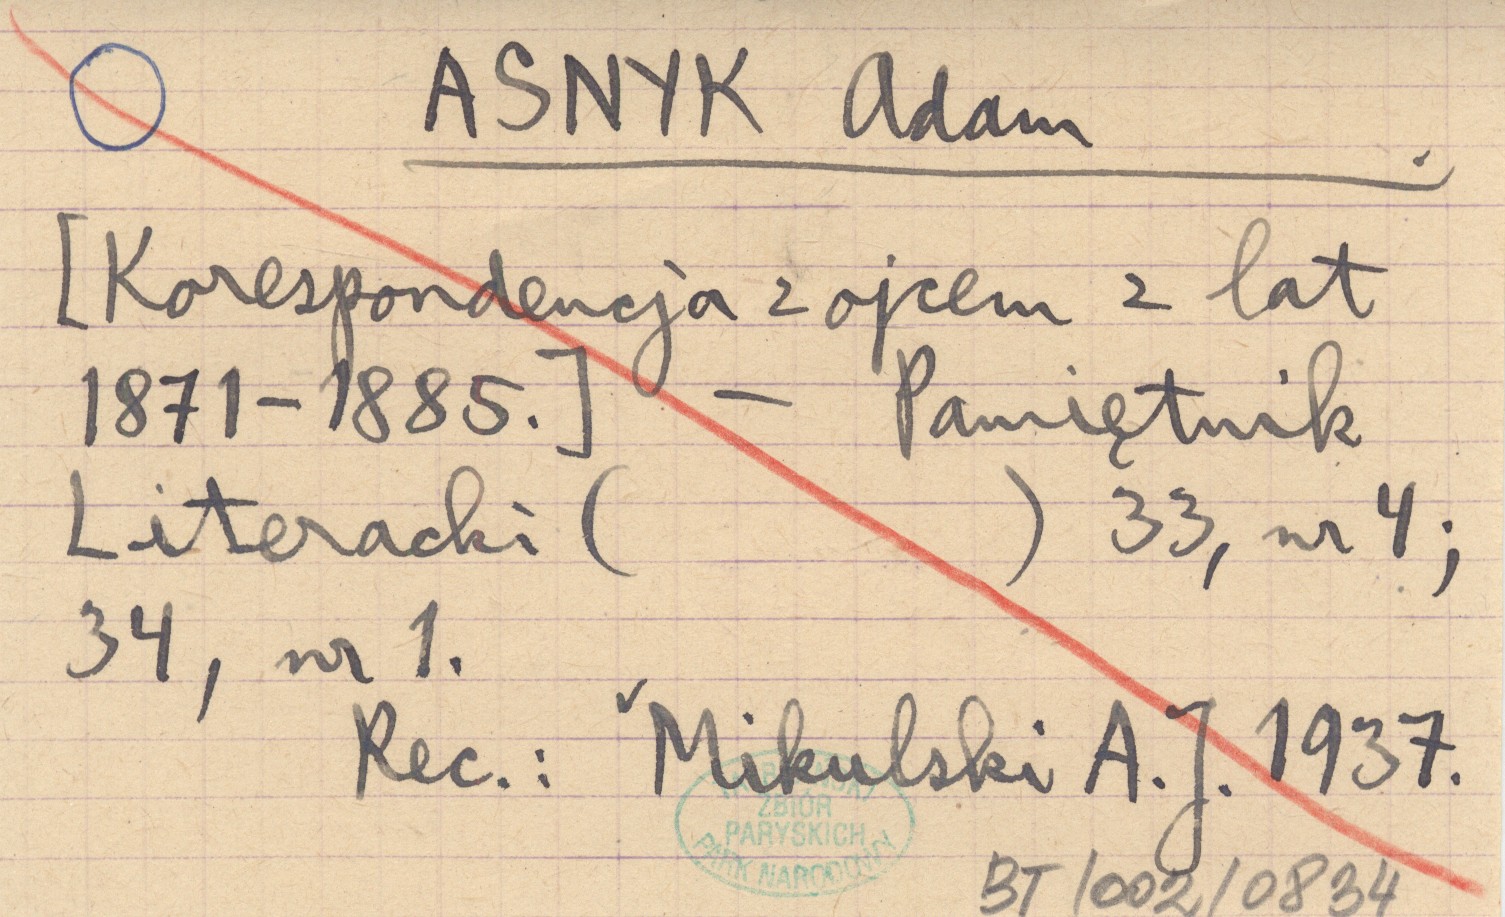 ASNYK Adam
[Korespondencja z ojcem z lat
1871-1885.] — Pamiętnik
Literacki (                    ) 33, nr 4;
34, nr 1.
Rec.: Mikulski A.J. 1937.
ZBIÓR
PARYSKICH
PARK NARODOWY
BT/002/0834